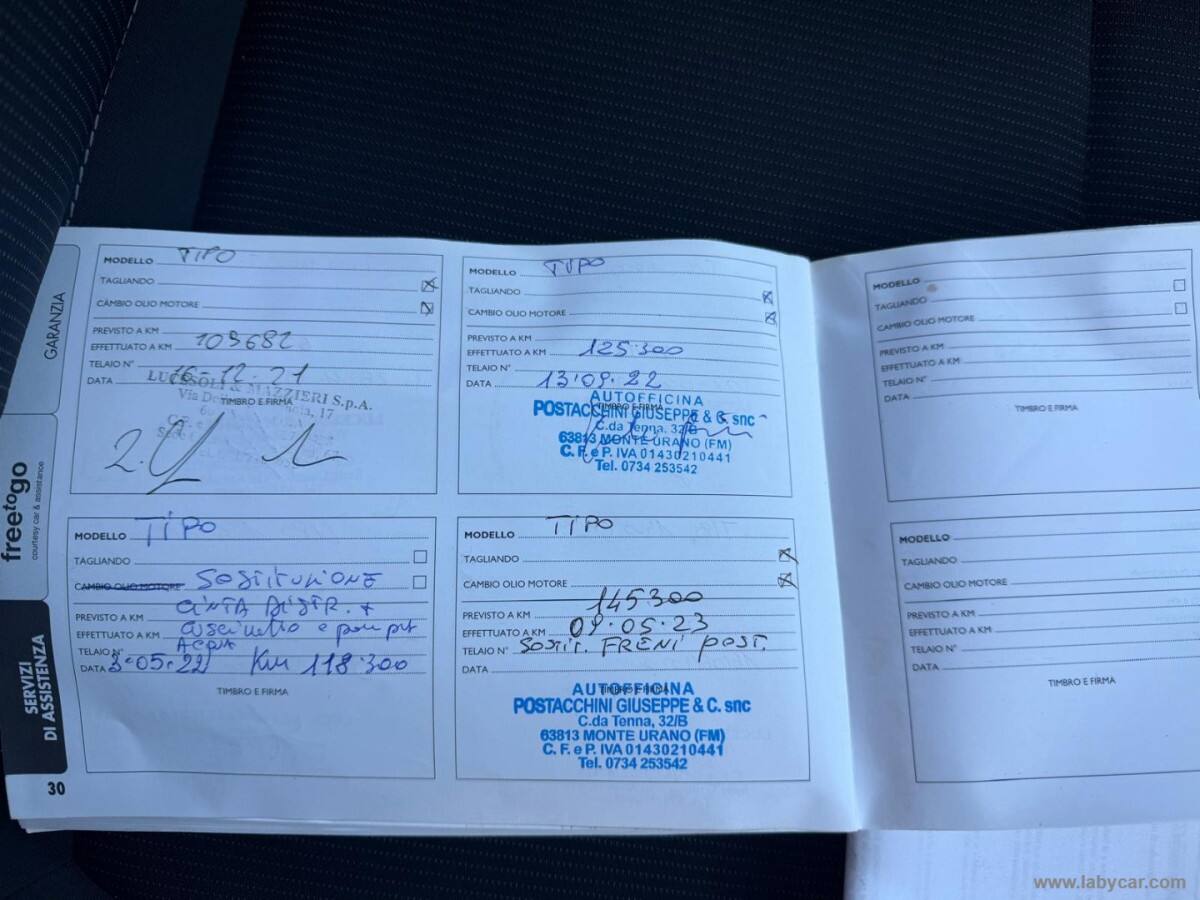 GARANZIA
free to go
courtesy car & assistance
SERVIZI
DI ASSISTENZA
30
MODELLO TIPO
TAGLIANDO
CAMBIO OLIO MOTORE
PREVISTO A KM
EFFETTUATO A KM 109682
TELAIO N°
DATA 16-12.21
MAZZIERI S.p.A.
TIMBRO E FIRMA
MODELLO TIPO
TAGLIANDO
CAMBIO OLIO MOTORE
PREVISTO A KM
EFFETTUATO A KM 125.300
TELAIO N°
DATA 13.09.22
AUTOFFICINA
TIMBRO E FIRMA
POSTACCHINI GIUSEPPE & C. snc
C.da Tenna, 32/B
63813 MONTE URANO (FM)
C. F. e P. IVA 01430210441
Tel. 0734 253542
MODELLO TIPO
TAGLIANDO
CAMBIO OLIO MOTORE SOSTITUZIONE
CINTA DISTR. +
PREVISTO A KM
EFFETTUATO A KM cuscinetto e pompa
TELAIO N° ACQUA
DATA 3.05.22 Km 118.300
TIMBRO E FIRMA
MODELLO TIPO
TAGLIANDO
CAMBIO OLIO MOTORE
PREVISTO A KM 145300
EFFETTUATO A KM 09.05.23
TELAIO N° SOSTIT. FRENI POST.
DATA
TIMBRO E FIRMA
AUTOFFICINA
POSTACCHINI GIUSEPPE & C. snc
C.da Tenna, 32/B
63813 MONTE URANO (FM)
C. F. e P. IVA 01430210441
Tel. 0734 253542
MODELLO
TAGLIANDO
CAMBIO OLIO MOTORE
PREVISTO A KM
EFFETTUATO A KM
TELAIO N°
DATA
TIMBRO E FIRMA
MODELLO
TAGLIANDO
CAMBIO OLIO MOTORE
PREVISTO A KM
EFFETTUATO A KM
TELAIO N°
DATA
TIMBRO E FIRMA
www.labycar.com